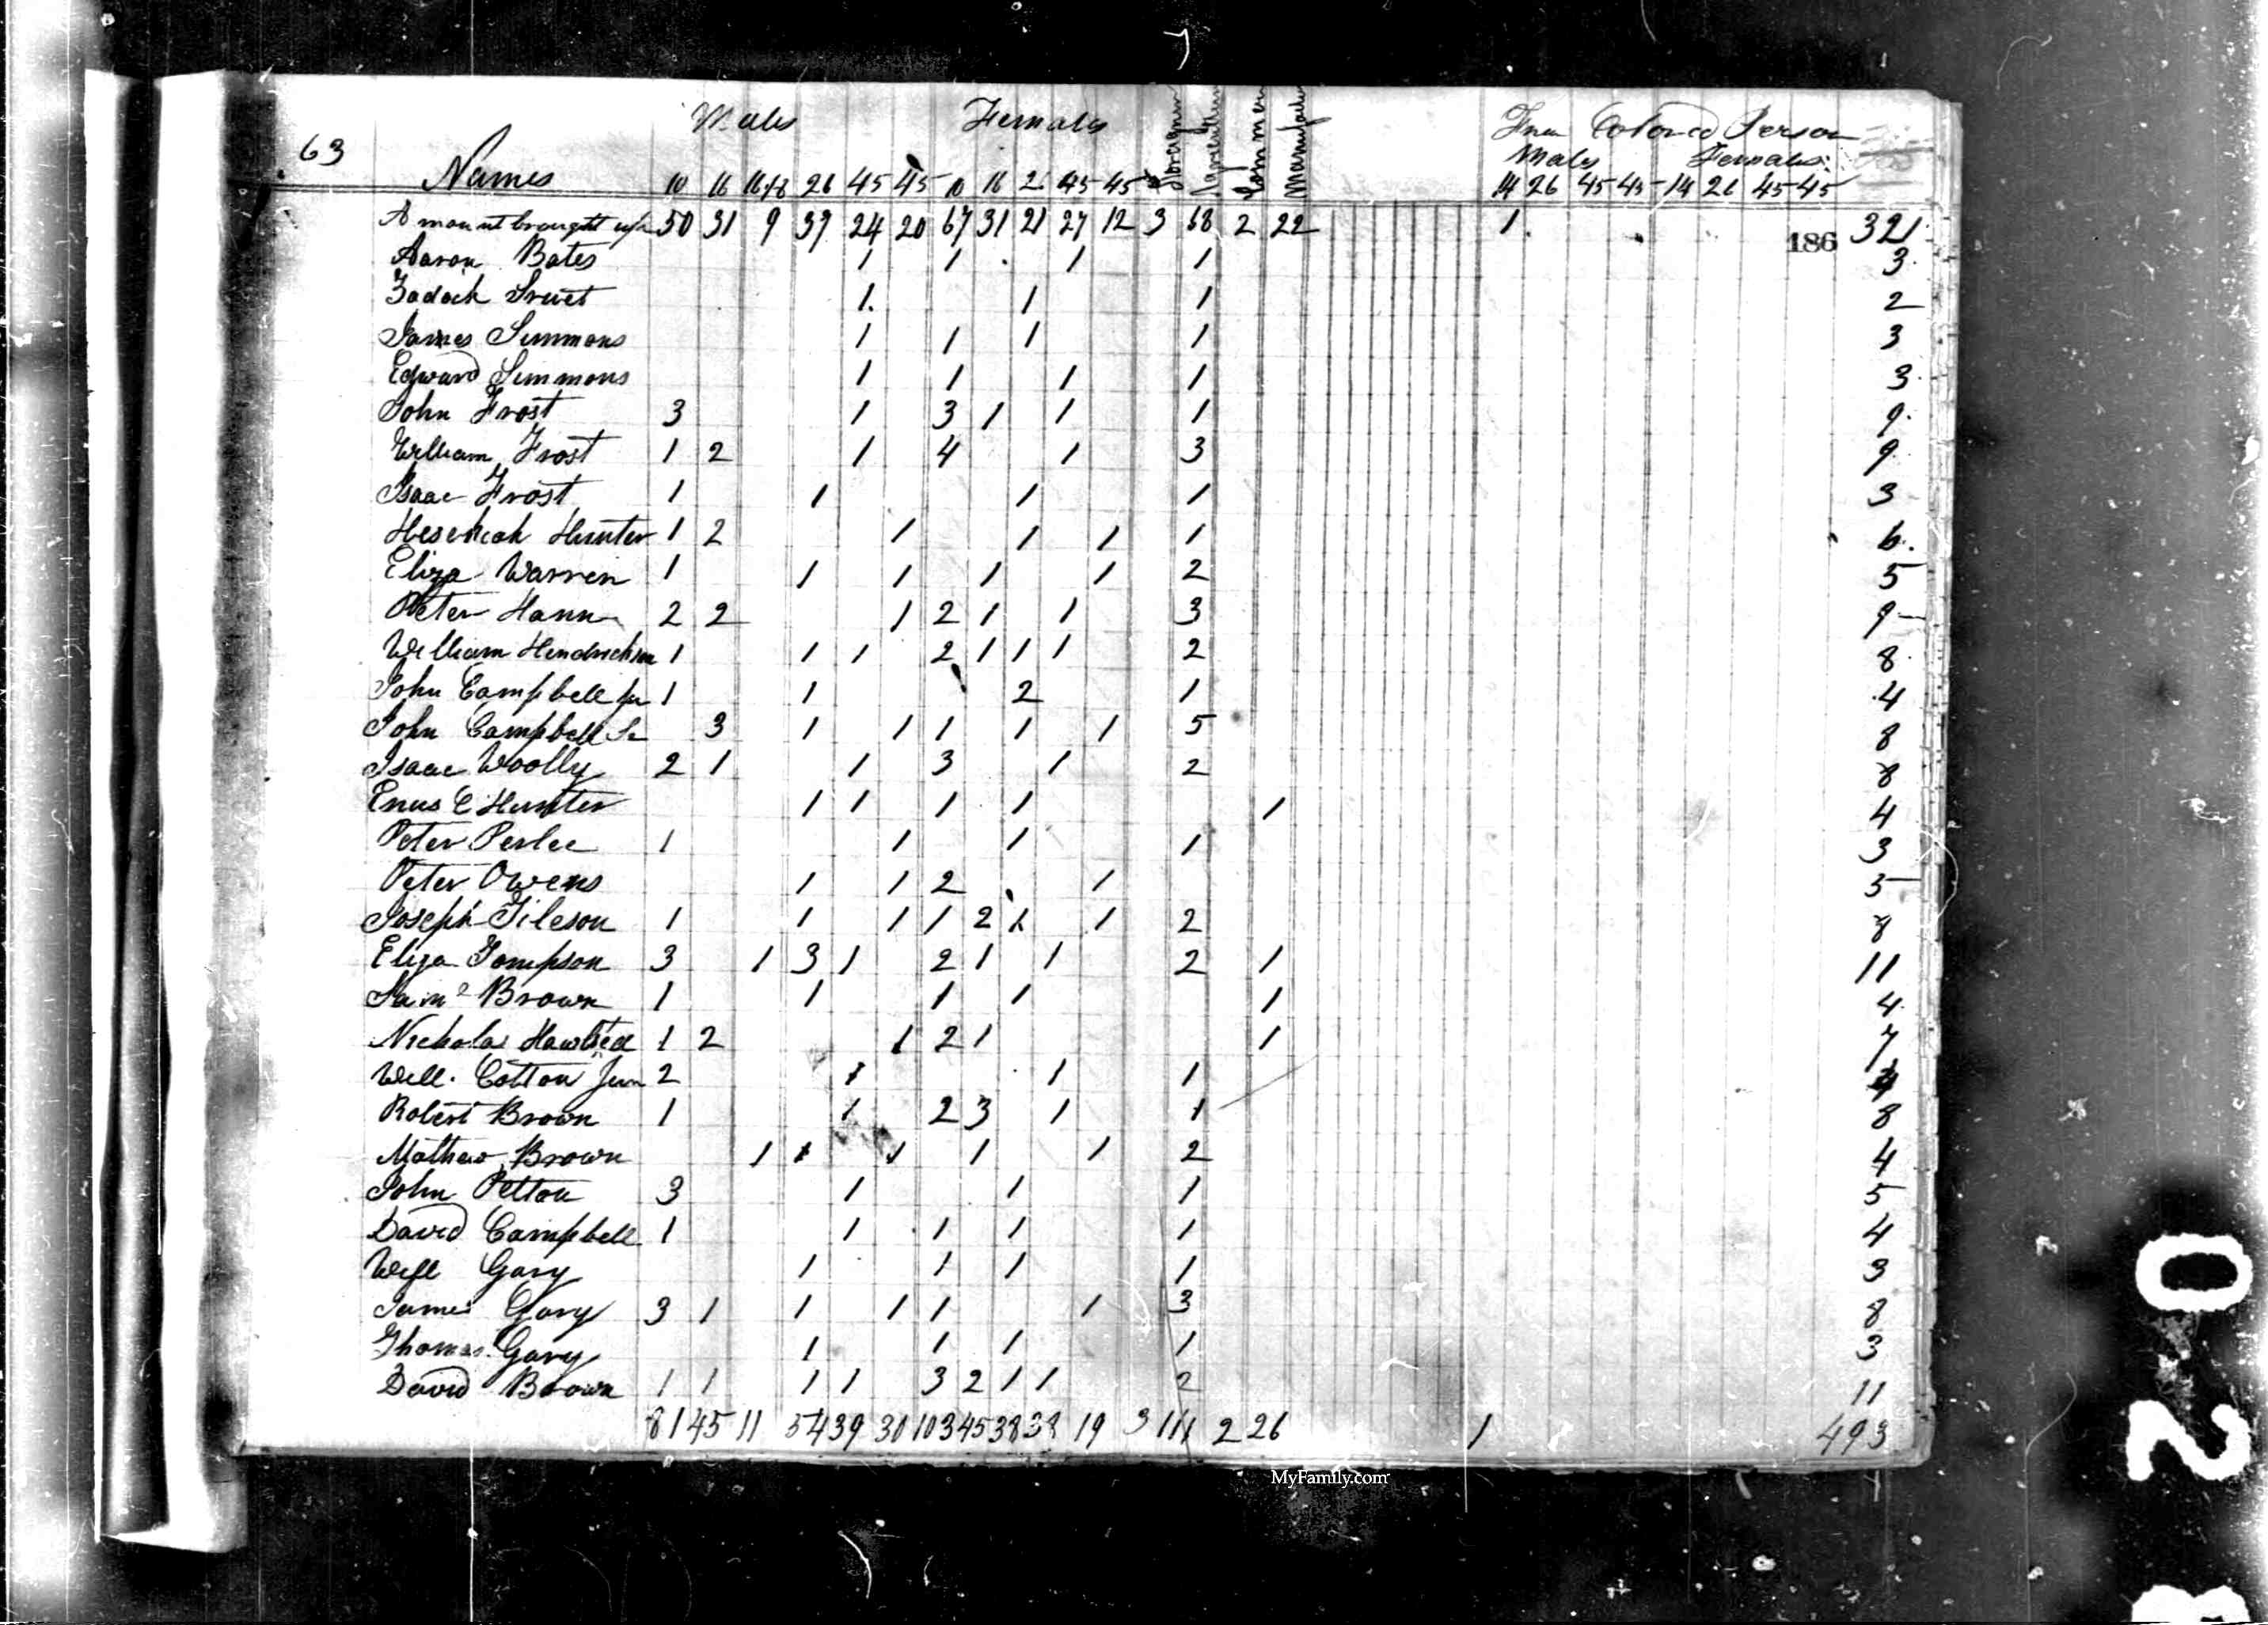 Males Females Foraigners Agriculture Commerce Manufacture Free Colored Person
63 Males Females
Names 10 16 16/18 26 45 45 10 16 26 45 45 14 26 45 45 14 26 45 45
Amount brought up 50 31 9 39 24 20 67 31 21 27 12 3 68 2 22 1 186 321
Aaron Bates 1 1 1 1 3
Zadock Truet 1 1 1 2
James Simmons 1 1 1 1 3
Edward Simmons 1 1 1 1 3
John Frost 3 1 3 1 1 1 9
William Frost 1 2 1 4 1 3 9
Isaac Frost 1 1 1 1 3
Hesekiah Hunter 1 2 1 1 1 1 6
Eliza Warren 1 1 1 1 1 2 5
Peter Hann 2 2 1 2 1 1 3 9
William Hendrickson 1 1 1 2 1 1 1 2 8
John Campbell Jur 1 1 2 1 4
John Campbell Se 3 1 1 1 1 1 5 8
Isaac Woolly 2 1 1 3 1 2 8
Enus C Hunter 1 1 1 1 1 4
Peter Perlee 1 1 1 1 3
Peter Owens 1 1 2 1 5
Joseph Tileson 1 1 1 1 2 1 1 2 8
Eliza Tompson 3 1 3 1 2 1 1 2 1 11
Saml Brown 1 1 1 1 1 4
Nicholas 1 2 1 2 1 1 7
Will. Cotton Jun 2 1 1 1 4
Robert Brown 1 1 2 3 1 1 8
Mathew Brown 1 1 1 1 1 2 4
John Pelton 3 1 1 1 5
David Campbell 1 1 1 1 1 4
Will Gary 1 1 1 1 3
James Gary 3 1 1 1 1 1 3 8
Thomas Gary 1 1 1 1 3
David Brown 1 1 1 1 3 2 1 1 2 11
81 45 11 54 39 30 103 45 38 38 19 3 111 2 26 1 493
MyFamily.com